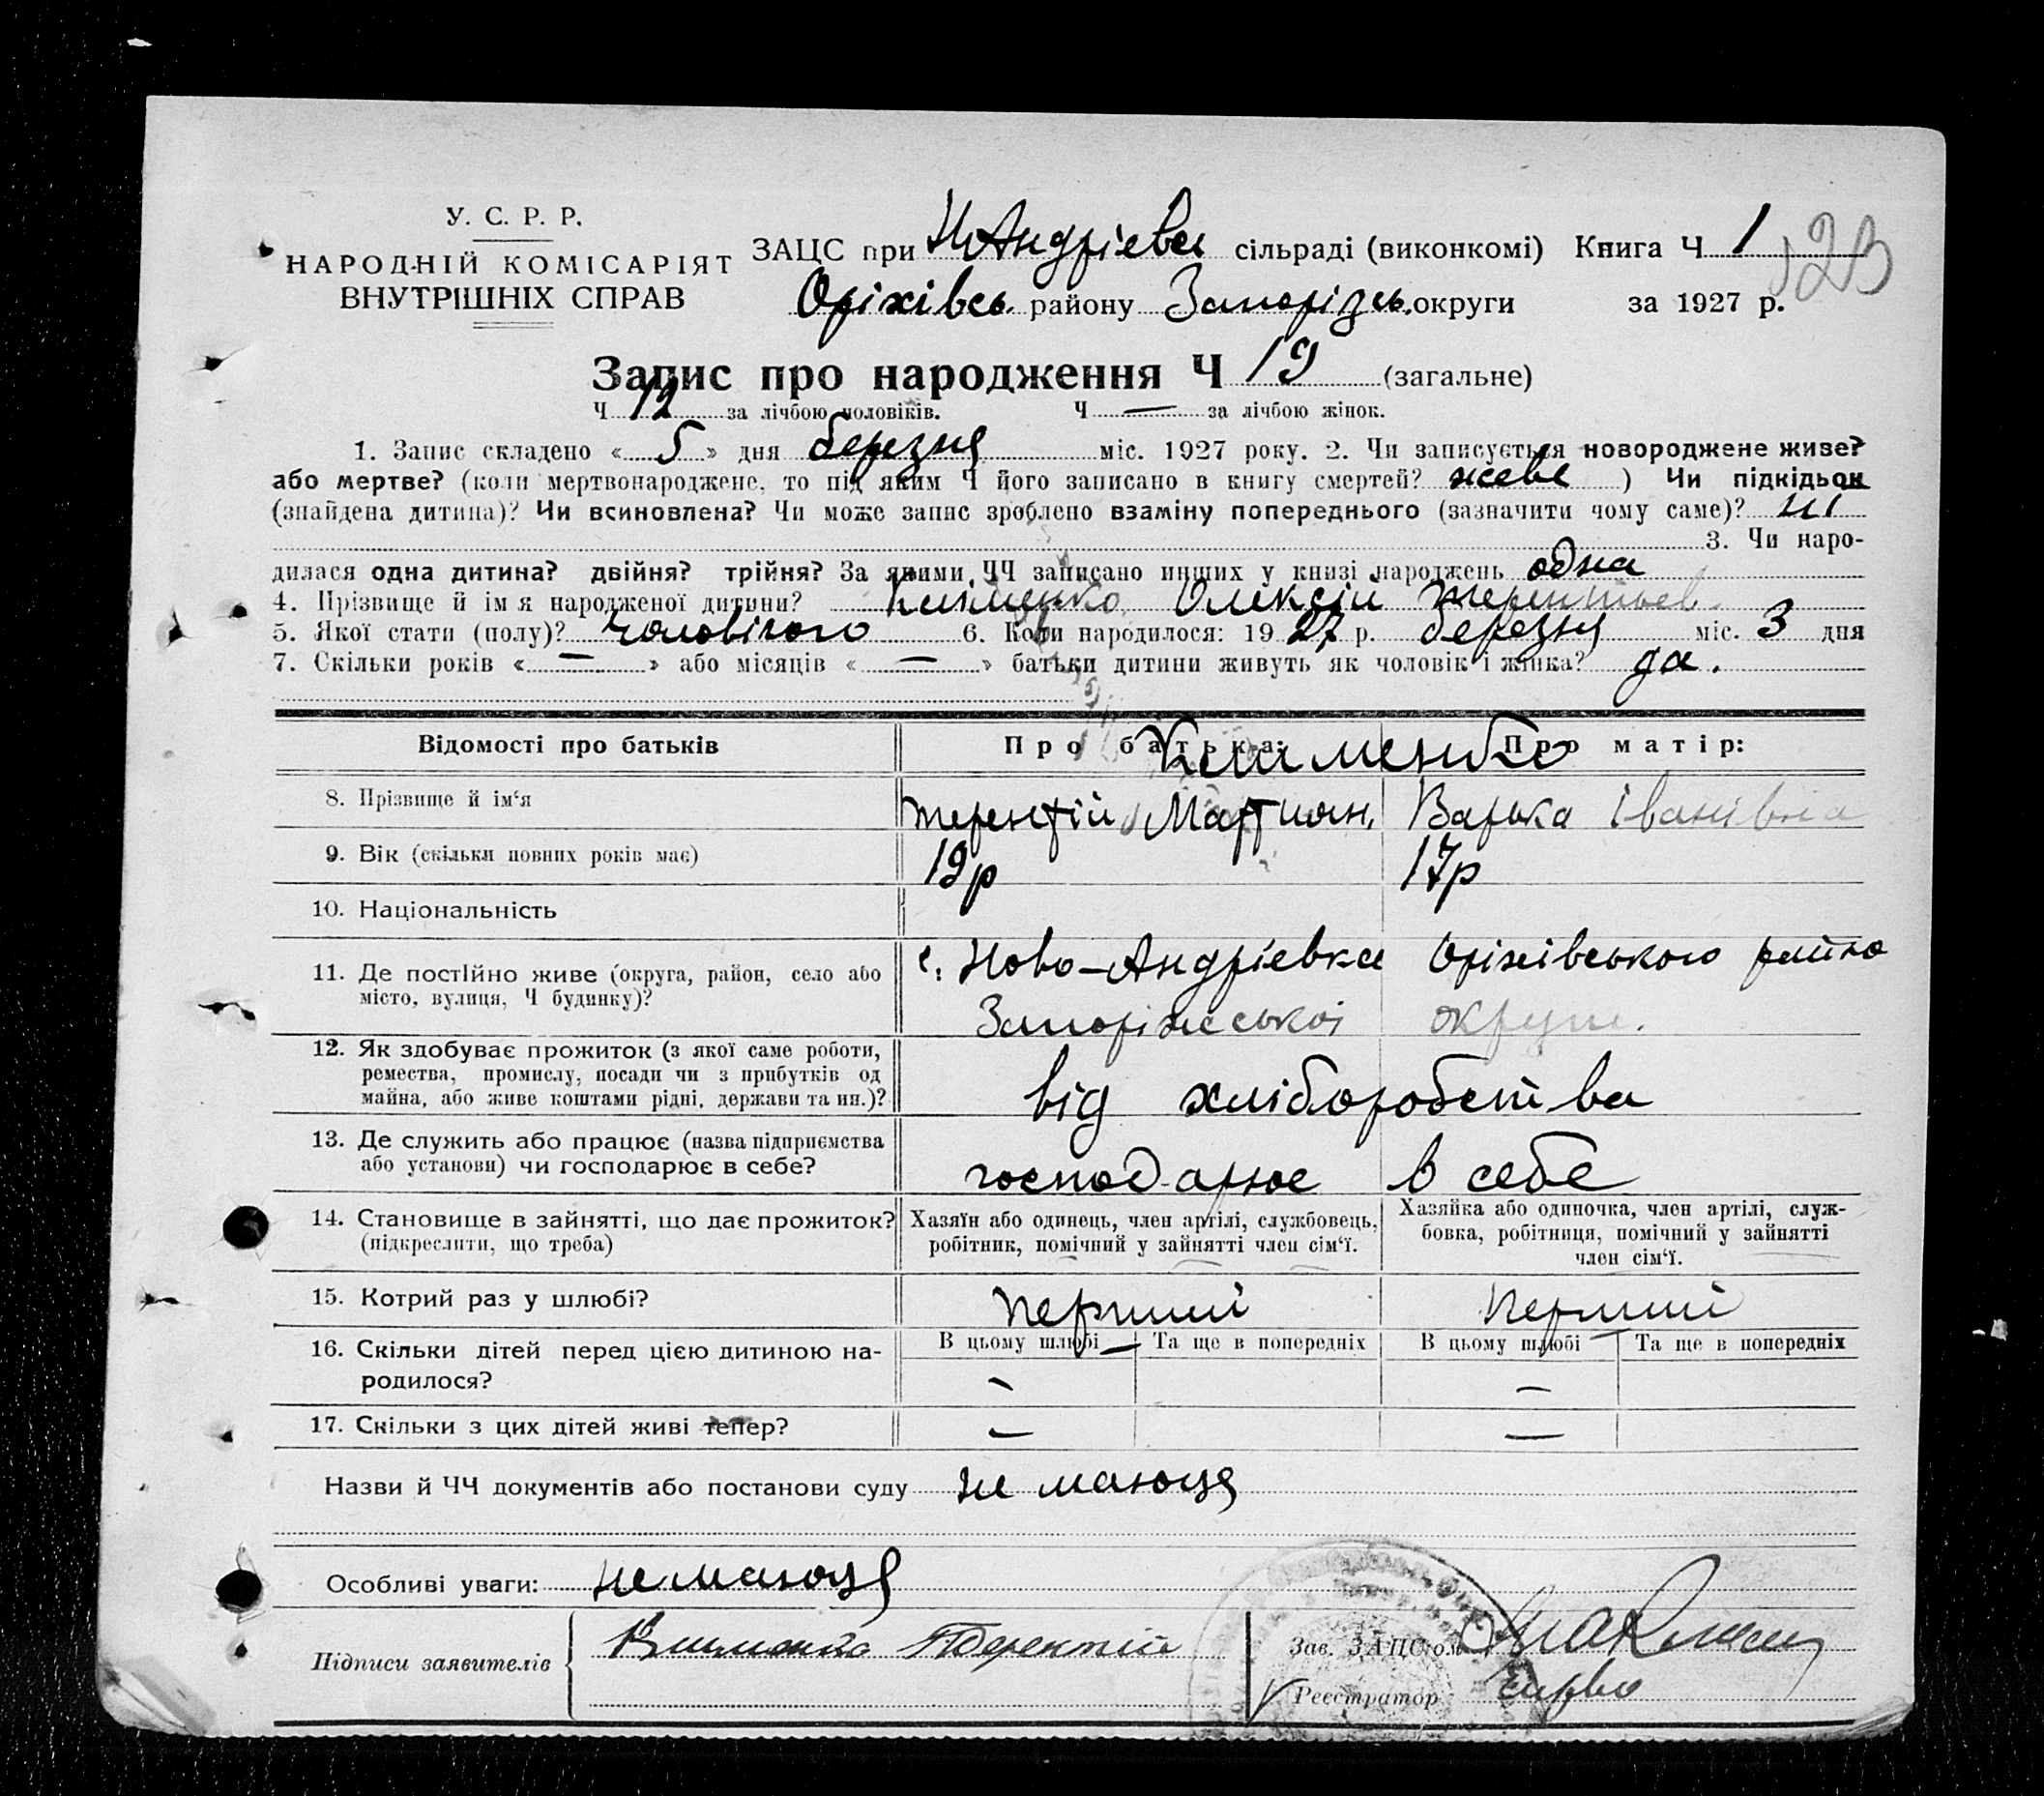 У. С. Р. Р.
НАРОДНІЙ КОМІСАРІЯТ
ВНУТРІШНІХ СПРАВ
ЗАЦС при Н Андріевсь сільраді (виконкомі) Книга Ч 1
123
Оріхівсь. району Запорізь. округи за 1927 р.
Запис про народження Ч 19 (загальне)
Ч 12 за лічбою чоловіків. Ч — за лічбою жінок.
1. Запис складено « 5 » дня березня міс. 1927 року. 2. Чи записується новороджене живе?
або мертве? (коли мертвонароджене, то під яким Ч його записано в книгу смертей? живе ) Чи підкідьок
(знайдена дитина)? Чи всиновлена? Чи може запис зроблено взаміну попереднього (зазначити чому саме)? ні
3. Чи наро-
дилася одна дитина? двійня? трійня? За якими ЧЧ записано инших у книзі народжень одна
4. Прізвище й ім'я народженої дитини? Клименко Олексій Терентьев.
5. Якої стати (полу)? Чоловічого 6. Коли народилося: 19 27 р. березня міс. 3 дня
7. Скільки років « — » або місяців « — » батьки дитини живуть як чоловік і жінка? да.
Відомості про батьків Про батька: Про матір:
Клименко
8. Прізвище й ім‘я Терентій Мартиан. Варька Іванівна
9. Вік (скільки повних років має) 19р 17р
10. Національність
11. Де постійно живе (округа, район, село або
місто, вулиця, Ч будинку)?
с. Ново-Андріевка Оріхівського райно
Запоріжської округи.
12. Як здобуває прожиток (з якої саме роботи,
ремества, промислу, посади чи з прибутків од
майна, або живе коштами рідні, держави та ин.)?
від хліборобства
13. Де служить або працює (назва підприємства
або установи) чи господарює в себе?
господарює в себе
14. Становище в зайнятті, що дає прожиток?
(підкреслити, що треба)
Хазяїн або одинець, член артілі, службовець,
робітник, помічний у зайнятті член сім‘ї.
Хазяйка або одиночка, член артілі, служ-
бовка, робітниця, помічний у зайнятті
член сім‘ї.
15. Котрий раз у шлюбі? перший перший
16. Скільки дітей перед цією дитиною на-
родилося?
В цьому шлюбі Та ще в попередніх В цьому шлюбі Та ще в попередніх
— —
17. Скільки з цих дітей живі тепер? — —
Назви й ЧЧ документів або постанови суду не маюця
Особливі уваги: не маюця
Підписи заявителів Клименко Терентій
Зав. ЗАЦС'ом
Реєстратор